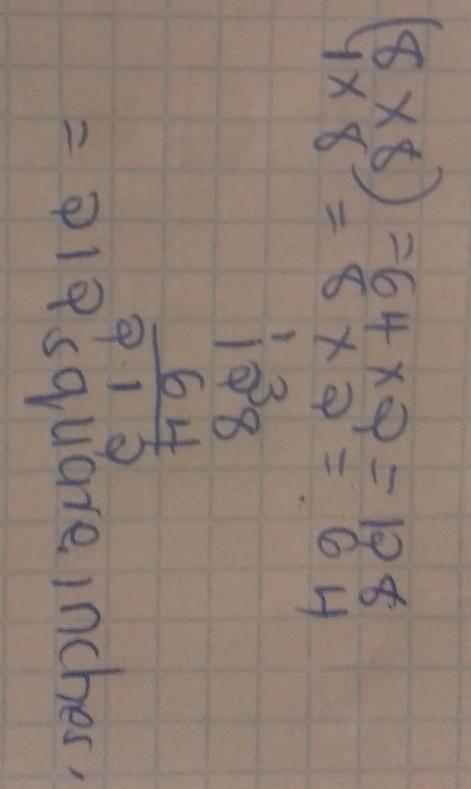 (8 x 8) = 64 x 2 = 128
4 x 8 = 8 x 2 = 64
1
128
64
212
= 212 square inches.